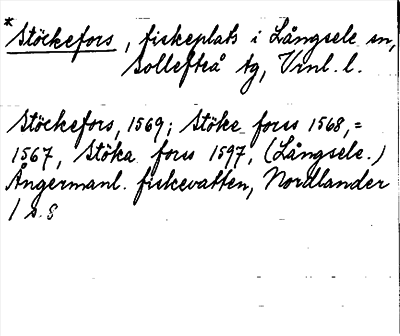 * Stöckefors, fiskeplats i Långsele sn,
Sollefteå tg, Vrnl. l.
Stöckefors, 1569; Stöke forss 1568, =
1567, Stöka forss 1597, (Långsele.)
Ångermanl. fiskevatten, Nordlander
/ s. 8